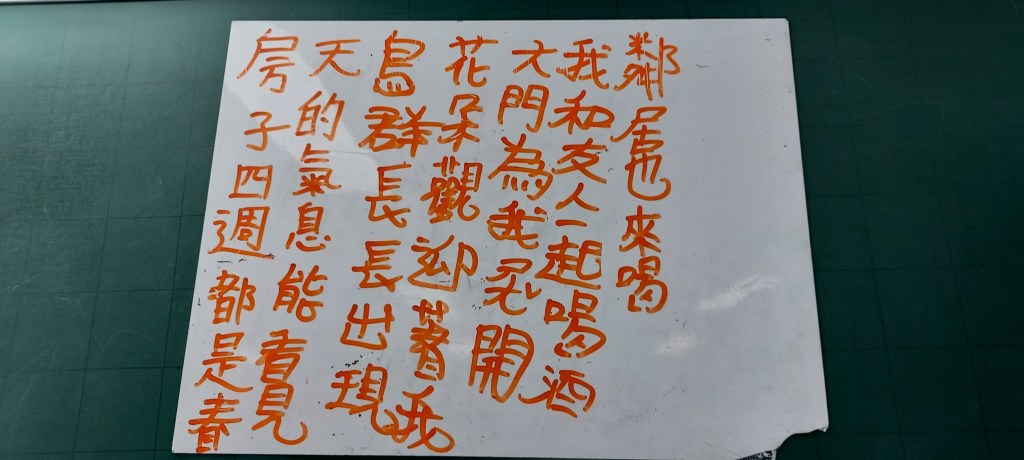 房子四週都是春
天的氣息能看見
鳥群長長出現
花朵觀迎著我
大門為我開
我和友人一起喝酒
鄰居也來喝